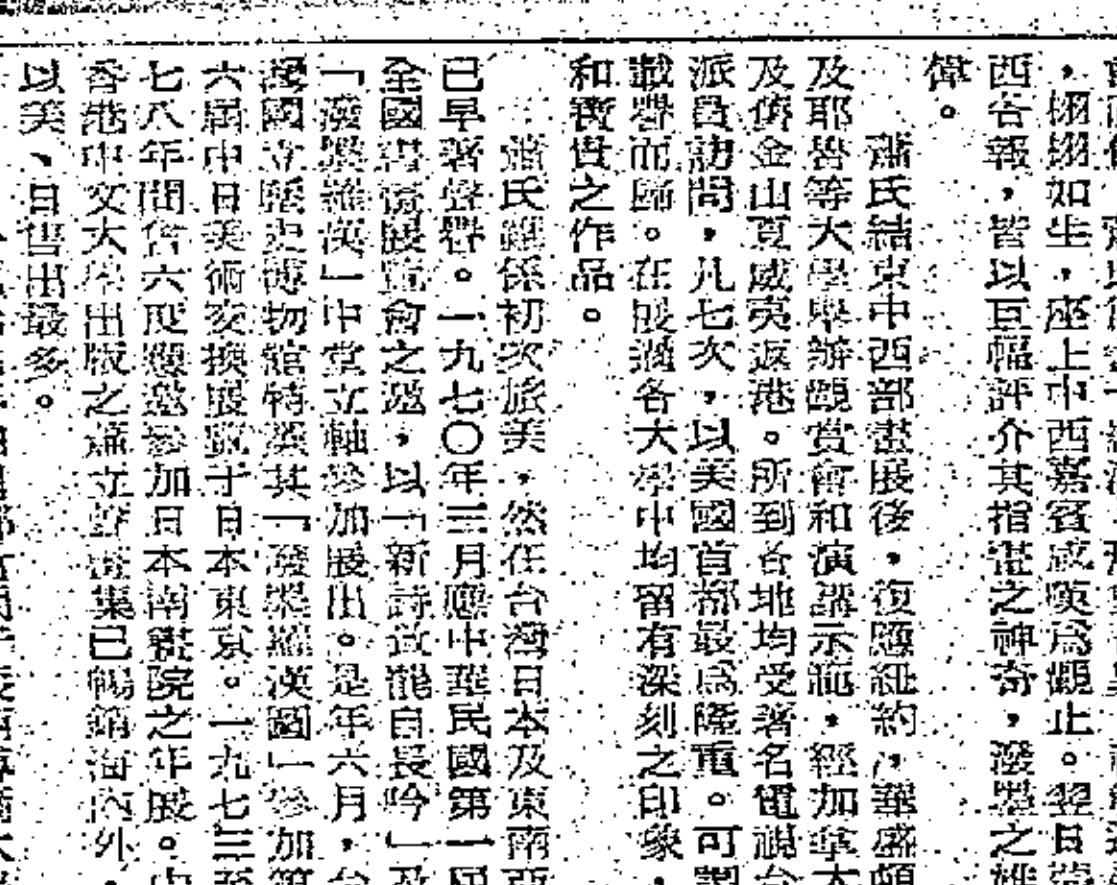 ，栩栩如生，座上中西嘉賓咸嘆爲觀止。翌日
西各報，皆以巨幅評介其指畫之神奇，潑墨之雄
偉。
蕭氏結束中西部畫展後，復應紐約，華盛頓
及耶魯等大學舉辦觀賞會和演講示範，經加拿大
及舊金山夏威夷返港。所到各地均受著名電視台
派員訪問，凡七次，以美國首都最爲隆重。可謂
載譽而歸。在展灑各大學中均留有深刻之印象，
和寶貴之作品。
蕭氏雖係初次旅美，然在台灣日本及東南亞
已早著聲譽。一九七〇年三月應中華民國第一屆
全國書畫展覽會之邀，以「新詩改罷自長吟」及
「潑墨羅漢」中堂立軸參加展出。是年六月，台
灣國立歷史博物館特選其「潑墨羅漢圖」參加第
六屆中日美術交換展覽于日本東京。一九七三至
七八年間曾六度應邀參加日本南畫院之年展。由
香港中文大學出版之蕭立聲畫集已暢銷海內外，
以美、日售出最多。